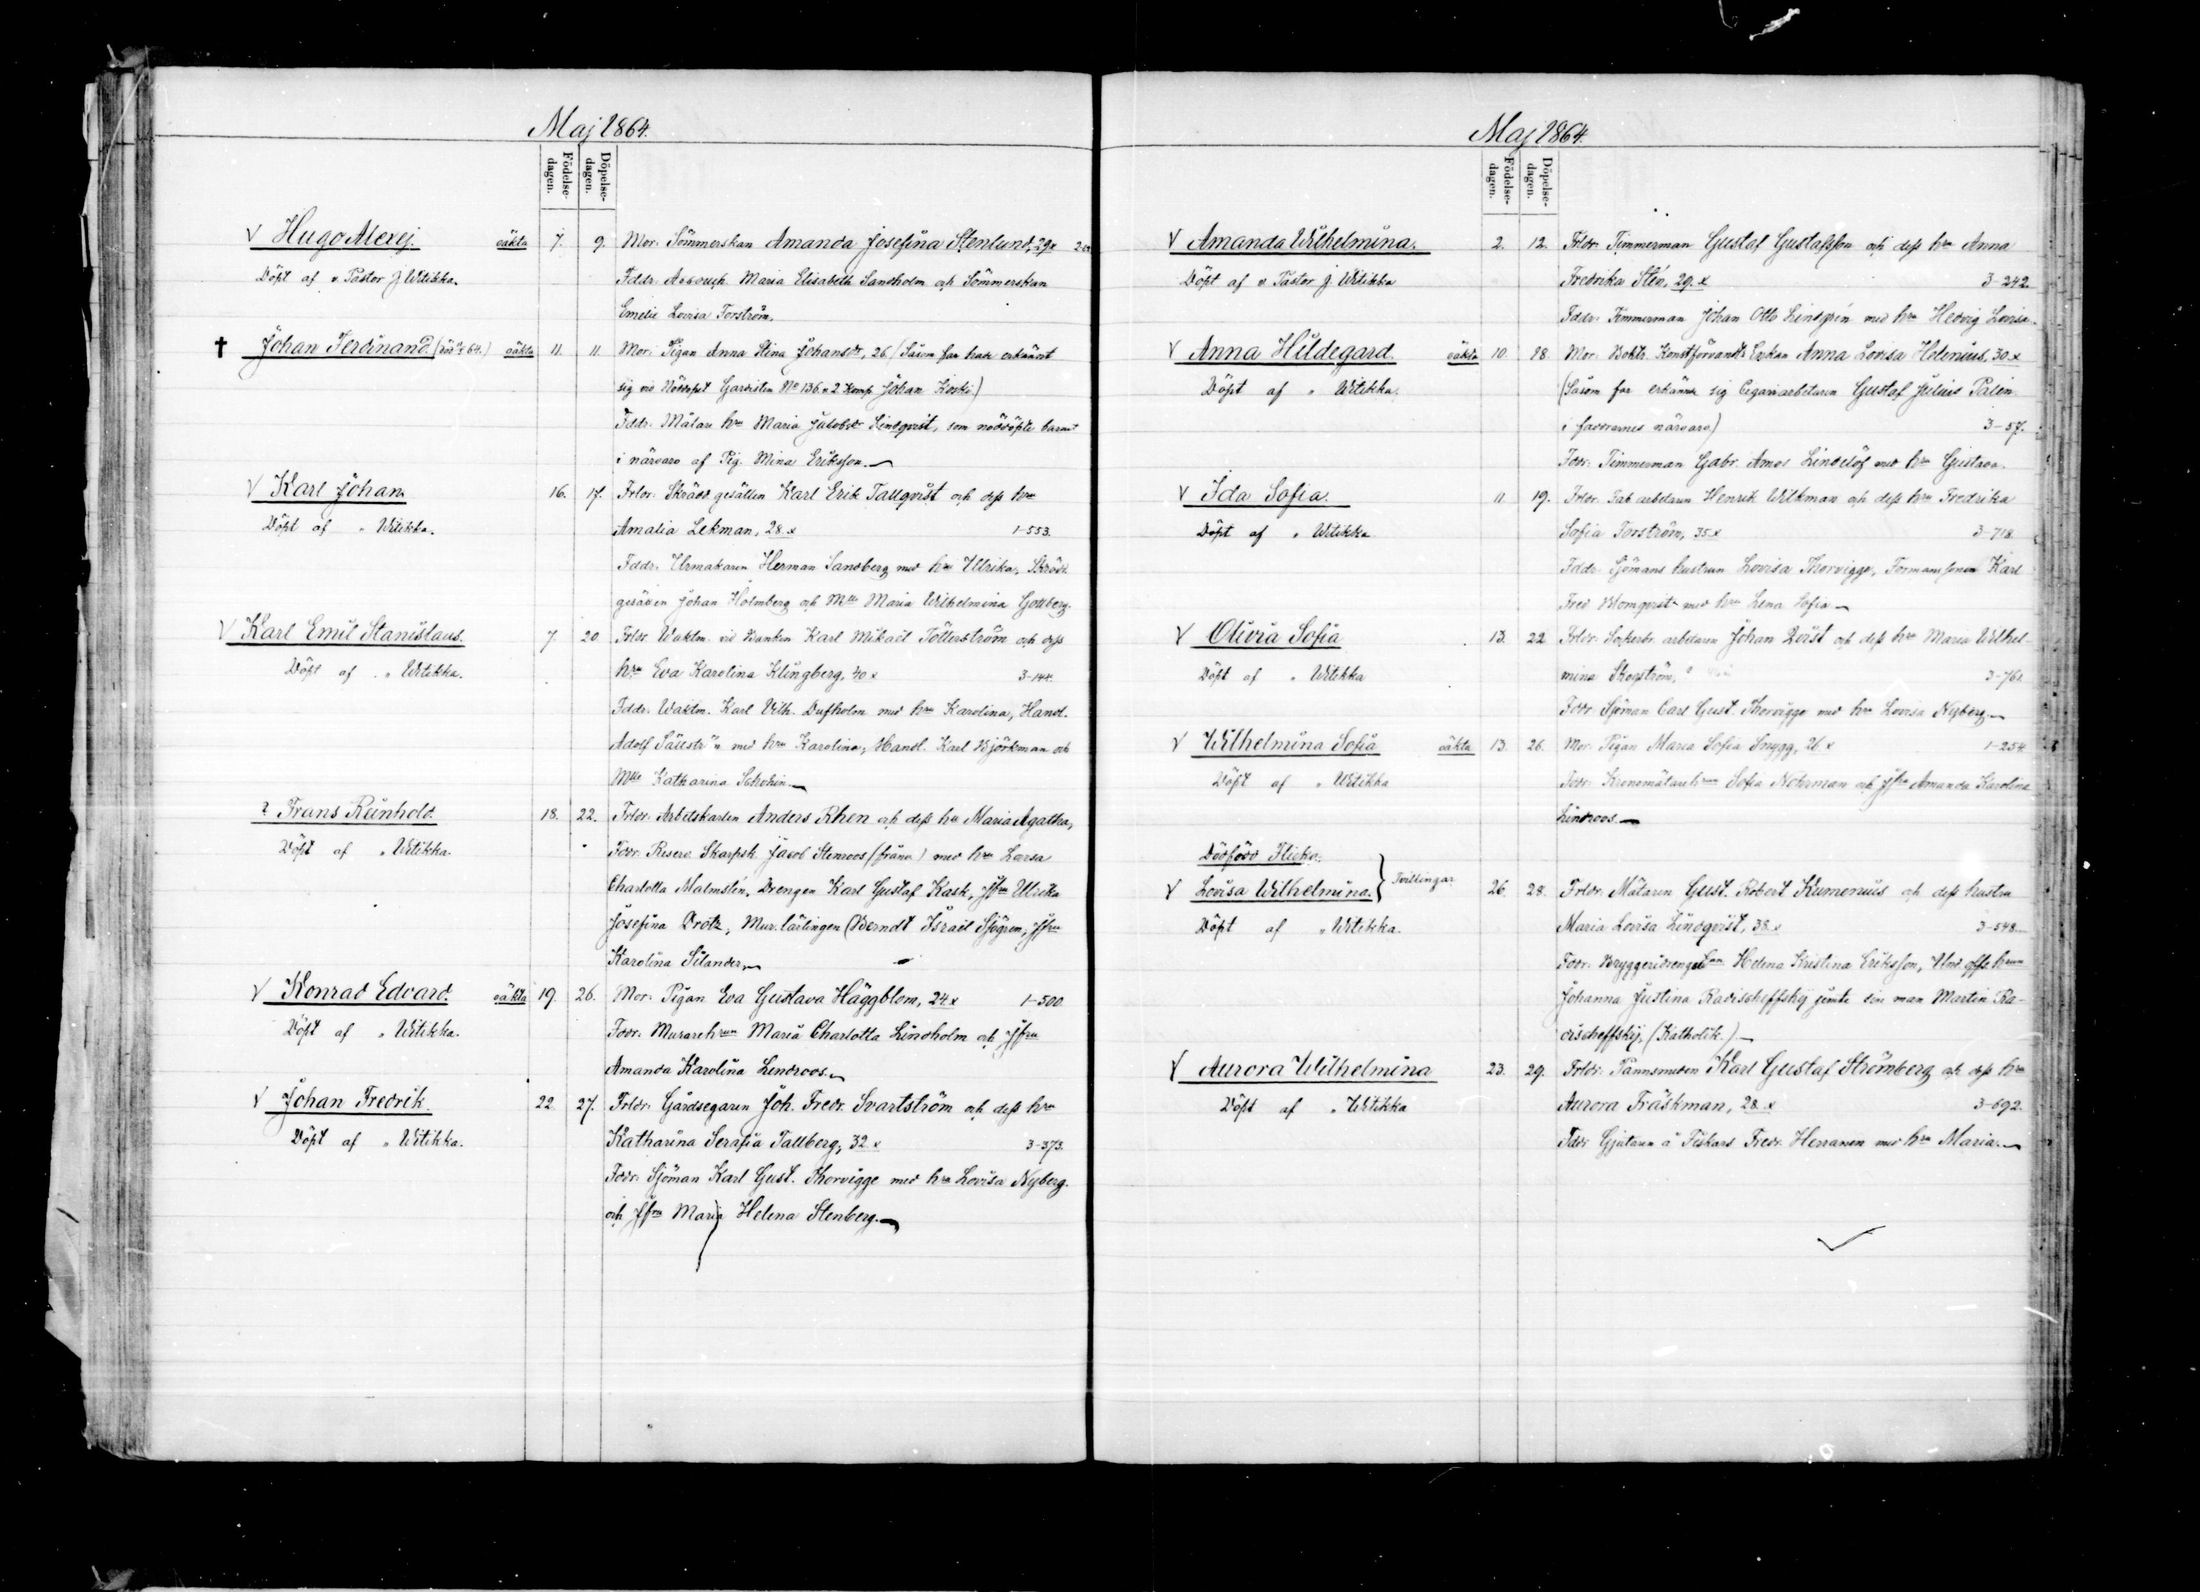 Maj 1864.
Födelse-dagen.
Döpelse-dagen.
Hugo Alexej. oäkta 7. 9. Mor: Sömmerskan Amanda Josefina Stenlund, 29 x
Döpt af v. Pastor J. Witikka. Fddr. Maria Elisabeth Sandholm och Sömmerskan
Emelie Lovisa Forström.
† Johan Ferdinand. oäkta 11. 11. Mor: Pigan Anna Stina Johansdr, 26. (Såsom far hade erkännt
sig vid Nöddopet Gardisten No 136 Johan Koski.)
Fddr: Målare hru Maria Jakobsdr Lindqvist, som nöddöpte barnet
i närvaro af Pig. Mina Eriksson.
Karl Johan 16. 17. Frldr: Skrädd. gesällen Karl Erik Tallqvist och dess hru
Döpt af " Witikka. Amalia Lekman, 28 x 1-553.
Fddr. Urmakaren Herman Sandberg med hru Ulrika, Skrädd.
gesällen Johan Holmberg och Mlle Maria Wilhelmina Gottberg.
Karl Emil Stanislaus. 7. 20. Frldr Waktm. vid Banken Karl Mikael Töllerström och dess
Döpt af " Witikka. hru Eva Karolina Klingberg, 40 x 3-144.
Fddr. Waktm. Karl Vilh. Dufholm med hru Karolina, Handl.
Adolf Sällstr"m med hru Karolina, Handl. Karl Björkman och
Mlle Katharina Schohin.
? Frans Reinhold. 18. 22. Frldr: Arbetskarlen Anders Rhen och dess hu Maria Agatha,
Döpt af " Witikka. Fddr: Reserv. Skarpsk. Jacob Stenroos (frånv.) med hru Larsa
Charlotta Malmstén, Drengen Karl Gustaf Kask, Jfru Ulrika
Josefina Qrotz, Mur. lärlingen Berndt Israel Sjögren, Jfru
Karolina Silander.
Konrad Edvard. oäkta 19. 26. Mor: Pigan Eva Gustava Häggblom, 24 x 1-500
Döpt af " Witikka. Fddr: Murareh:run Maria Charlotta Lindholm och Jfru
Amanda Karolina Lindroos.
Johan Fredrik. 22. 27. Frldr: Gårdsegaren Joh. Fredr. Svartström och dess hru
Döpt af " Witikka. Katharina Serafia Tallberg, 32 x 3-373.
Fddr: Sjöman Karl Gust. Thorvigge med hru Lovisa Nyberg.
och Jfru Maria Helena Stenberg.
Maj 1864.
Födelse-dagen.
Döpelse-dagen.
Amanda Wilhelmina. 2. 12. Frldr: Timmerman Gustaf Gustafsson och dess hru Anna
Döpt af v. Pastor J. Witikka Fredrika Stén, 29. x 3-242.
Fddr: Timmerman Johan Otto Lindgrén med hru Hedvig Lovisa.
Anna Hildegard. oäkta 10. 18. Mor: Boktr. Konstförvandts Enkan Anna Lovisa Helenius, 30 x
Döpt af " Witikka. (Såsom far erkände sig Cigarrarbetaren Gustaf Julius Palén
i faddrarnes närvaro) 3-57.
Fddr: Timmerman Gabr. Amos Lindelöf med hru Gustava.
Ida Sofia. 11 19. Frldr: Fab. arbetaren Henrik Wilkman och dess hru Fredrika
Döpt af " Witikka Sofia Forström, 35 x 3-718.
Fddr: Sjömans hustrun Lovisa Thorvigge, Formanssonen Karl
Fred. Blomqvist med hru Lena Sofia
Olivia Sofia 13. 22 Frldr: Sockerbr. arbetaren Johan Qvist och dess hru Maria Wilhel-
Döpt af " Witikka mina Skogström, 3-761.
Fddr Sjöman Carl Gust. Thorvigge med hru Lovisa Nyberg.
Wilhelmina Sofia oäkta 13. 26. Mor: Pigan Maria Sofia Snygg, 26 x 1-254
Döpt af " Witikka Fddr: Kronomätareh:run Sofia Nohrman och Jfru Amanda Karolina
Lindroos.
Dödfödd Flicka.
Lovisa Wilhelmina. Tvillingar 26. 28. Frldr: Målaren Gust. Robert Kumenius och dess hustru
Döpt af " Witikka. Maria Lovisa Lindqvist, 38 x 3-548.
Fddr: Bryggeridrengsh:run Helena Kristina Eriksson, Und. offs. h:run
Johanna Justina Radischeffskij jemte sin man Martin Ra-
dischefskij, (Katholik.)
Aurora Wilhelmina 23. 29. Frldr: Pannsmeden Karl Gustaf Strömberg och dess hru
Döpt af " Witikka Aurora Träskman, 28 x 3-692.
Fddr Gjutaren å Fiskars Fredr. Herranen med hru Maria.